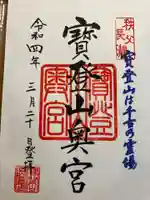 秩父
長瀞
宝登山は千古の霊場
寳登山奥宮
令和四年
三月二十日登拝